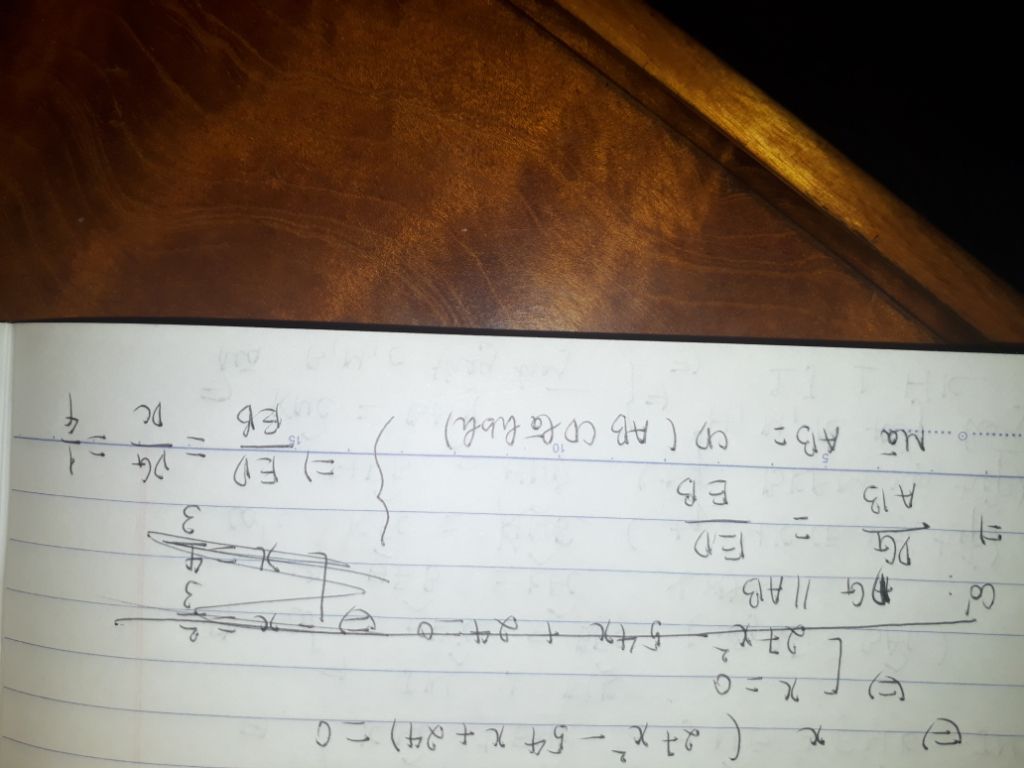 (=) x (27x² - 54x + 24) = 0
(=) [ x = 0
27x² - 54x + 24 = 0 (=) [ x = 2/3
x = 4/3
Có: DG // AB
=) DG/AB = ED/EB
Mà AB = CD (ABCD là hbh)
=) ED/EB = DG/DC = 1/4